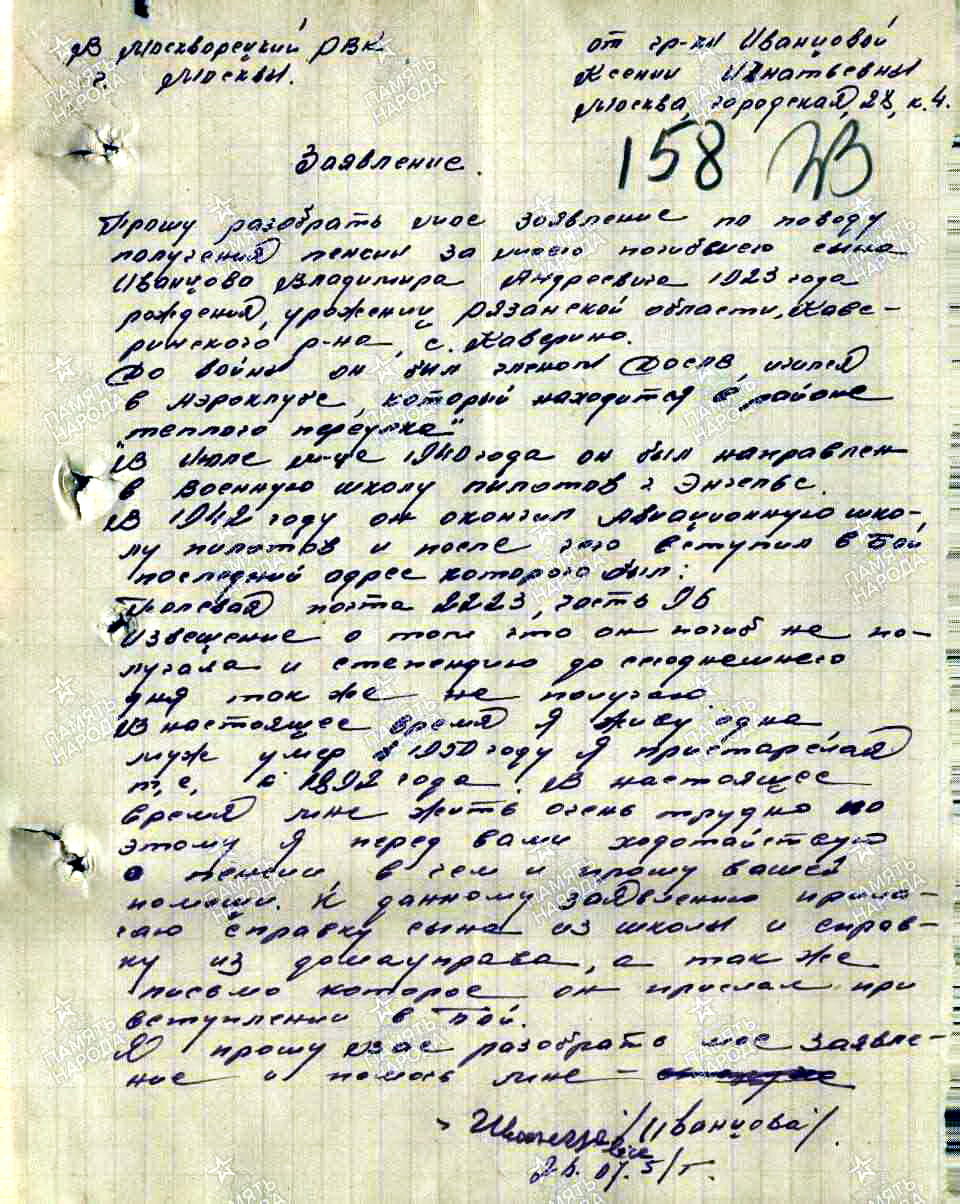 В Москворецкий РВК
г. Москвы.
от гр-ки Иванцовой
Ксении Игнатьевны
Москва, городская, 28, к. 4.
158
Заявление.
Прошу разобрать мое заявление по поводу
получения пенсии за моего погибшего сына
Иванцова Владимира Андреевича 1923 года
рождения, урожении Рязанской области, Каве-
ринского р-на, с. Каверино.
До войны он был членом Досав, учился
в Аэроклубе, который находится в районе
"теплого переулка"
В июле м-це 1940 года он был направлен
в военную школу пилотов г Энгельс.
В 1942 году он окончил Авиационную шко-
лу пилотов и после чего вступил в Бой
последний адрес которого был:
Полевая почта 2223, часть 96
извещение о том что он погиб не по-
лучала и степендию до сегоднешнего
дня так же не получаю.
В настоящее время я живу одна
муж умер в 1950 году я пристарелая
т, е, с 1892 года. В настоящее
время мне жить очень трудно по
этому я перед вами ходотайствую
о пенсии в чем и прошу вашей
помощи. К данному заявлению прила-
гаю справку сына из школы и справ-
ку из домауправа, а так же
письмо которое он прислал при
вступлении в Бой.
Я прошу вас разобрать мое заявле-
ние и помочь мне –
/Иванцова/.
ПАМЯТЬ НАРОДА